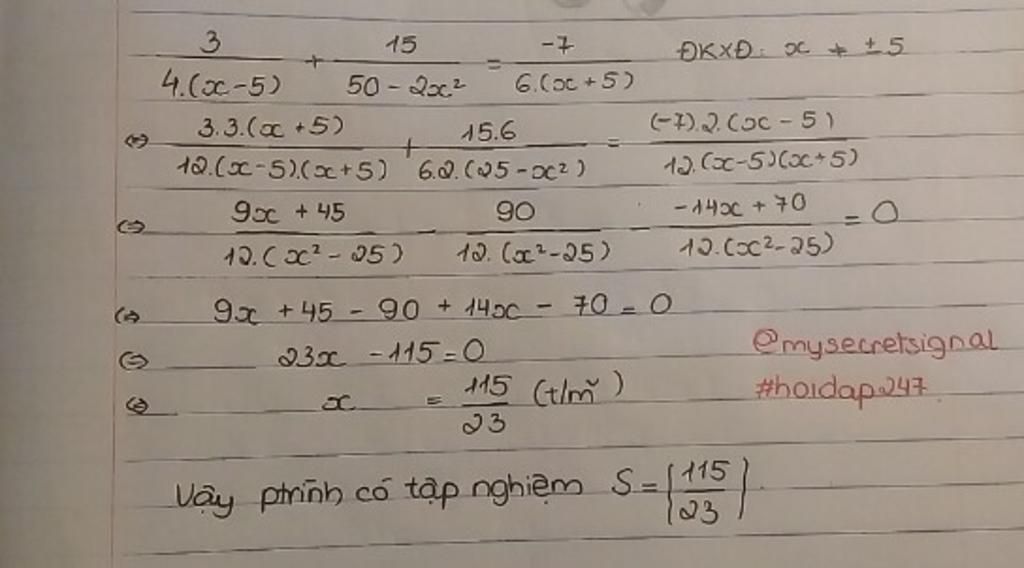 3/(4.(x-5)) + 15/(50-2x²) = -7/(6.(x+5)) ĐKXĐ: x ≠ ±5
⇔ 3.3.(x+5)/(12.(x-5).(x+5)) + 15.6/(6.2.(25-x²)) = (-7).2.(x-5)/(12.(x-5)(x+5))
⇔ (9x+45)/(12.(x²-25)) - 90/(12.(x²-25)) - (-14x+70)/(12.(x²-25)) = 0
⇔ 9x + 45 - 90 + 14x - 70 = 0
⇔ 23x - 115 = 0
⇔ x = 115/23 (t/m)
@mysecretsignal
#hoidap247
Vậy ptrình có tập nghiệm S = {115/23}